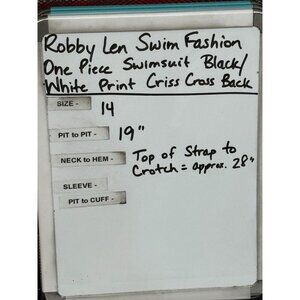 Robby Len Swim Fashion
One Piece Swimsuit Black/
White Print Criss Cross Back
SIZE - 14
PIT to PIT - 19"
NECK to HEM - Top of Strap to
Crotch = approx. 28"
SLEEVE -
PIT to CUFF -